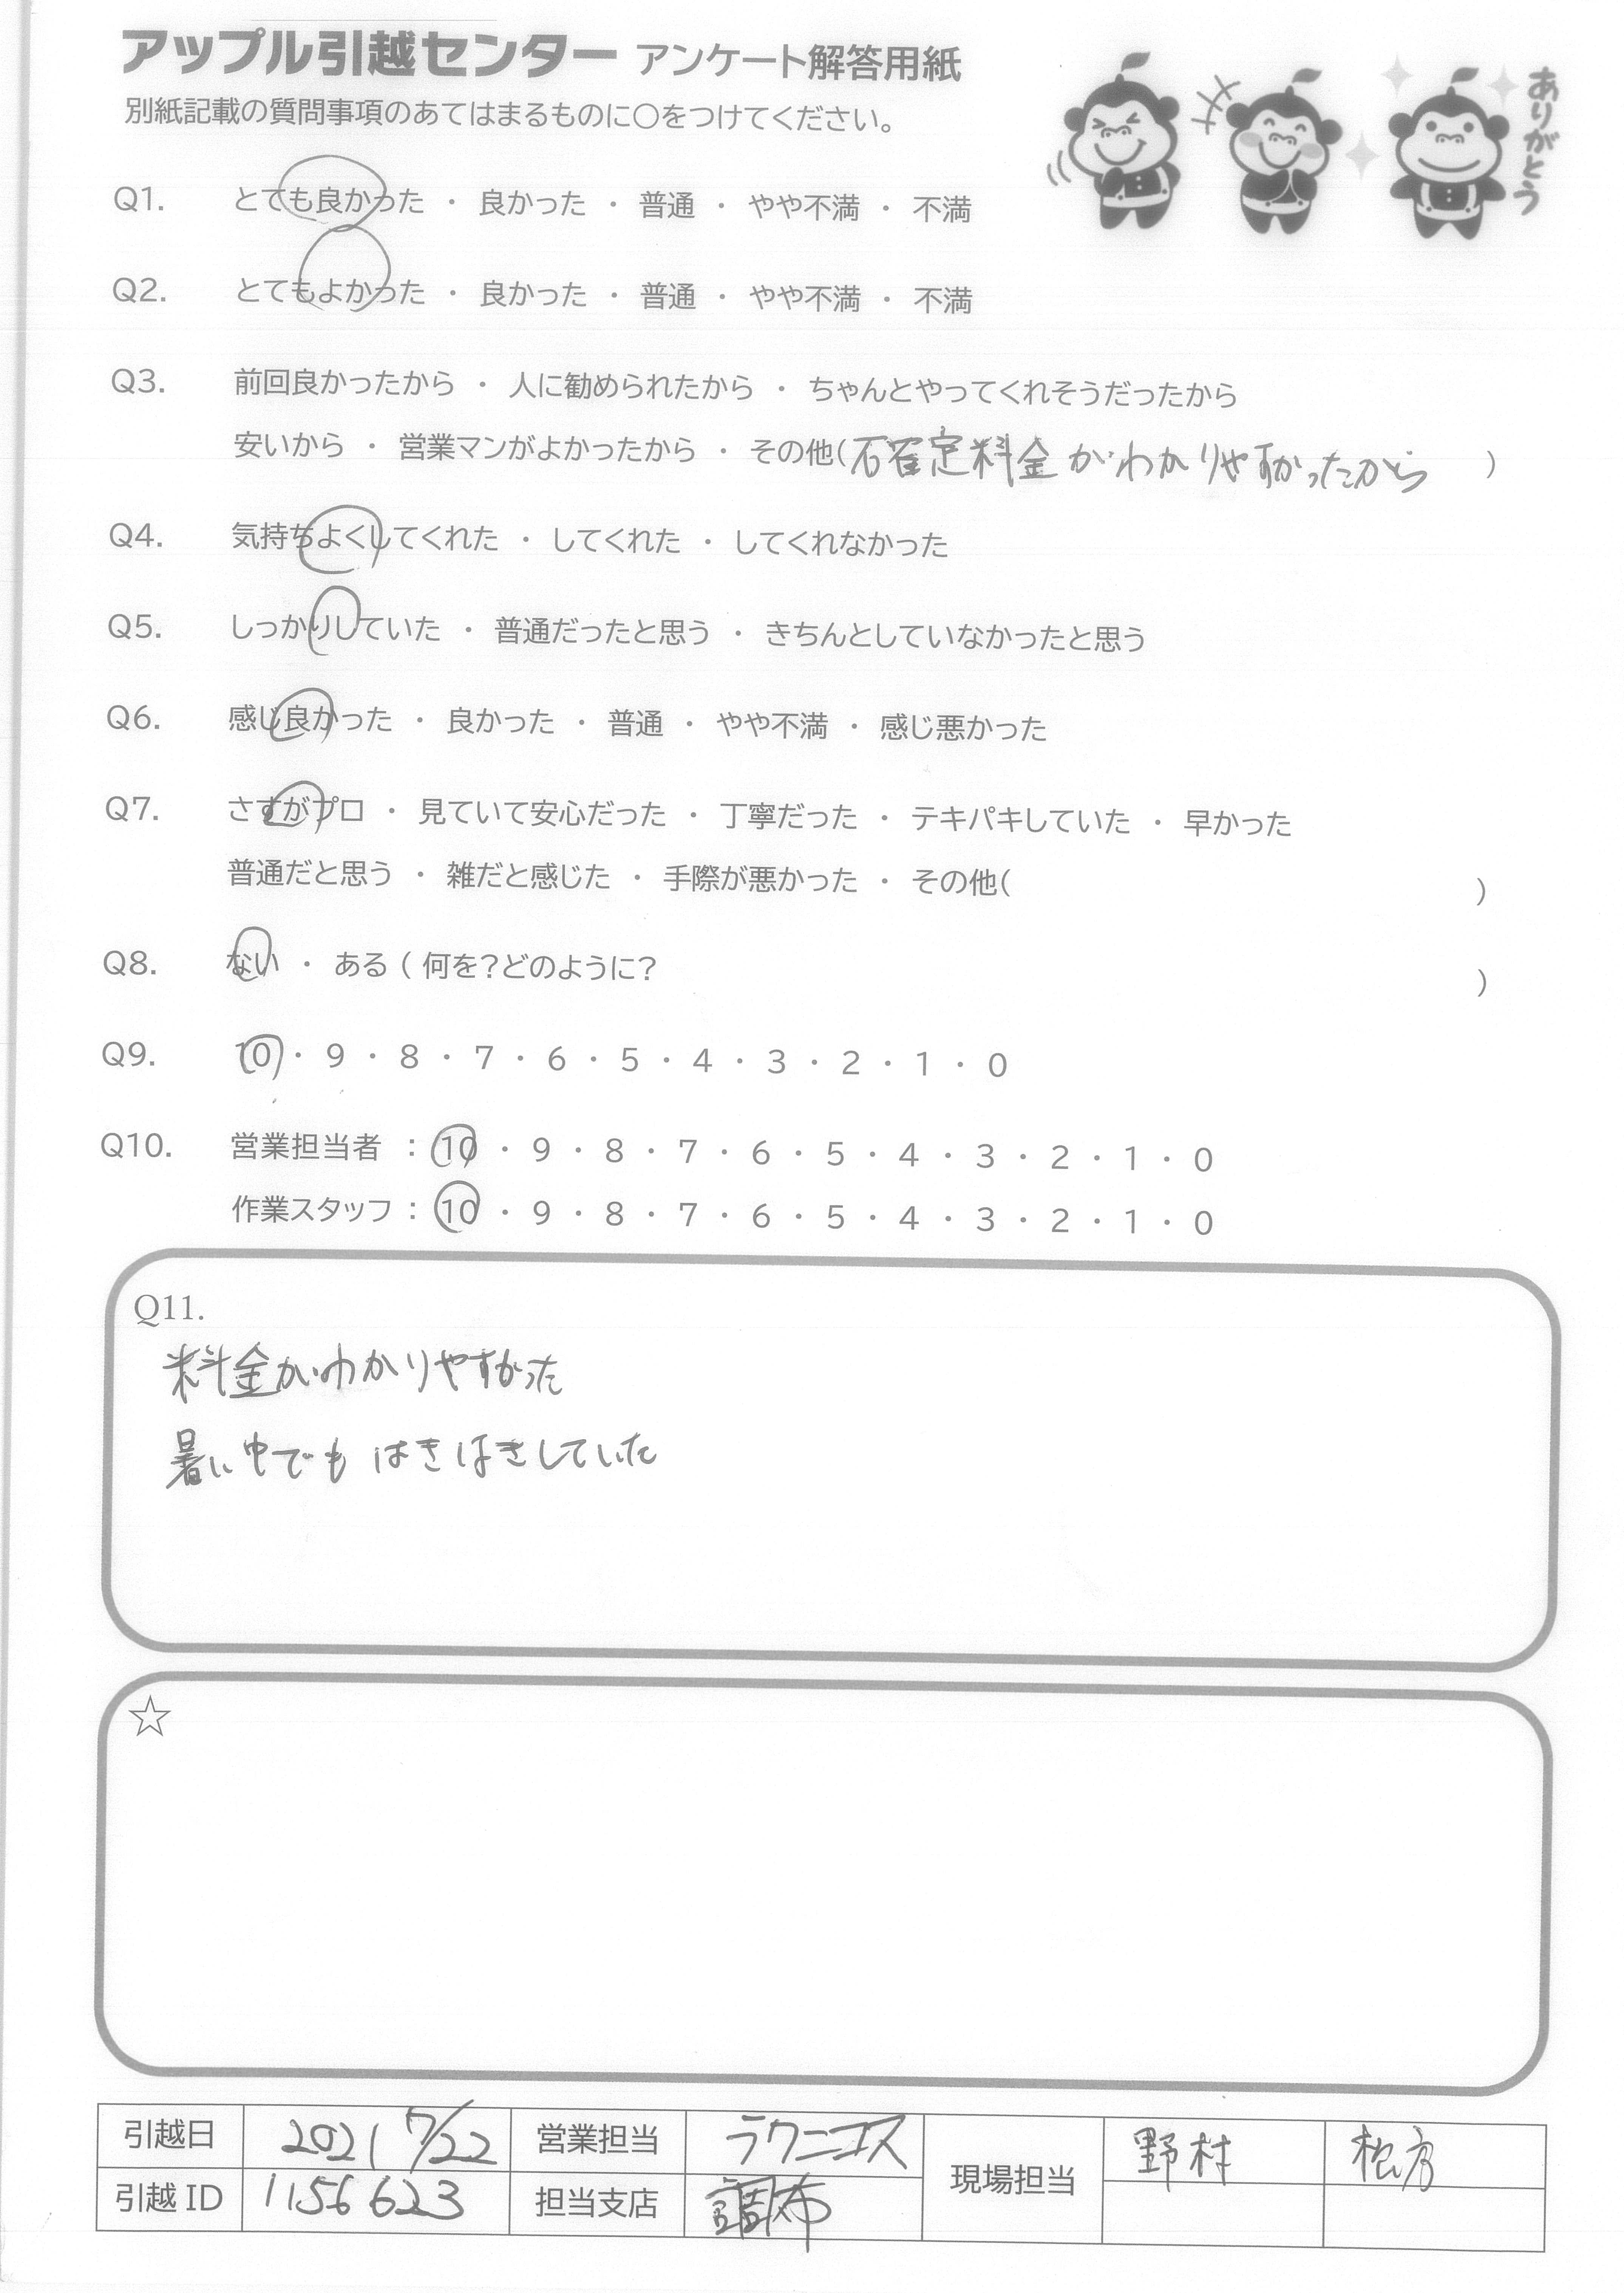 アップル引越センター アンケート解答用紙
別紙記載の質問事項のあてはまるものに〇をつけてください。
ありがとう
Q1. とても良かった ・ 良かった ・ 普通 ・ やや不満 ・ 不満
Q2. とてもよかった ・ 良かった ・ 普通 ・ やや不満 ・ 不満
Q3. 前回良かったから ・ 人に勧められたから ・ ちゃんとやってくれそうだったから
安いから ・ 営業マンがよかったから ・ その他(確定料金がわかりやすかったから )
Q4. 気持ちよくしてくれた ・ してくれた ・ してくれなかった
Q5. しっかりしていた ・ 普通だったと思う ・ きちんとしていなかったと思う
Q6. 感じ良かった ・ 良かった ・ 普通 ・ やや不満 ・ 感じ悪かった
Q7. さすがプロ ・ 見ていて安心だった ・ 丁寧だった ・ テキパキしていた ・ 早かった
普通だと思う ・ 雑だと感じた ・ 手際が悪かった ・ その他( )
Q8. ない ・ ある ( 何を?どのように? )
Q9. 10 ・ 9 ・ 8 ・ 7 ・ 6 ・ 5 ・ 4 ・ 3 ・ 2 ・ 1 ・ 0
Q10. 営業担当者 : 10 ・ 9 ・ 8 ・ 7 ・ 6 ・ 5 ・ 4 ・ 3 ・ 2 ・ 1 ・ 0
作業スタッフ : 10 ・ 9 ・ 8 ・ 7 ・ 6 ・ 5 ・ 4 ・ 3 ・ 2 ・ 1 ・ 0
Q11.
料金がわかりやすかった
暑い中でも はきはきしていた
☆
引越日 2021 7/22 営業担当 ラクニコス 現場担当 野村
引越 ID 1156623 担当支店 調布